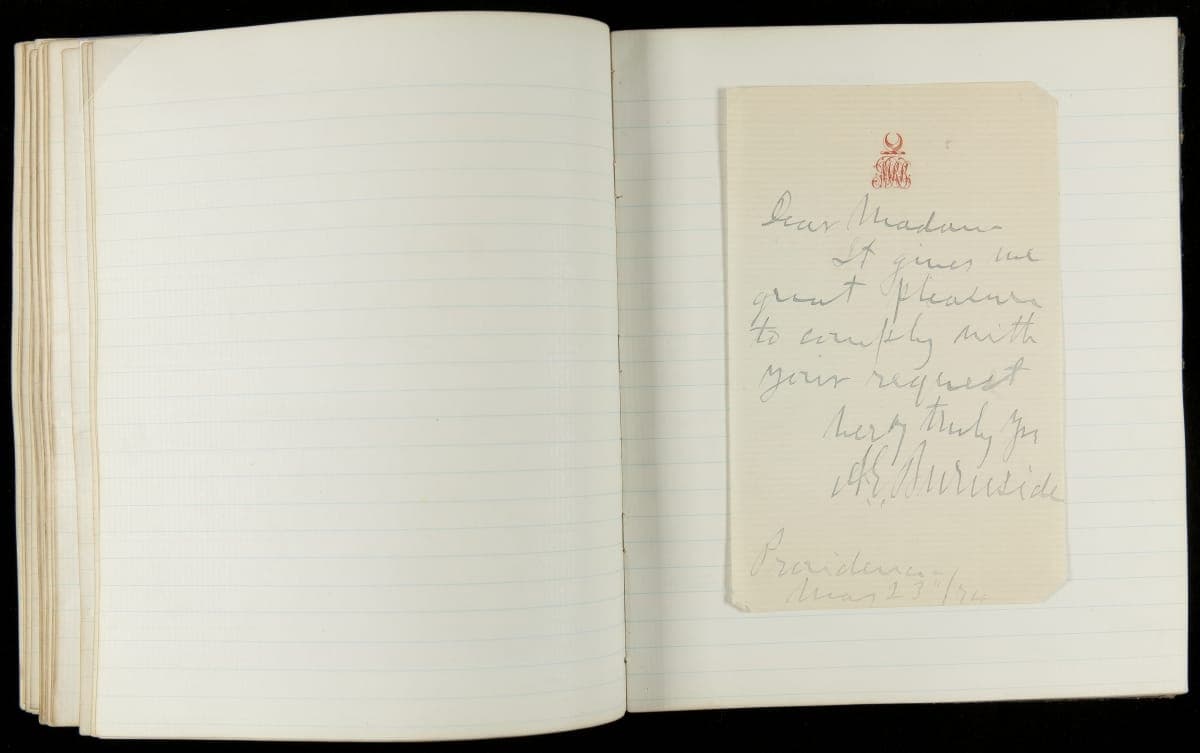 Dear Madam
It gives me
great pleasure
to comply with
your request
Very truly yrs
A.E. Burnside
Providence
23"/74